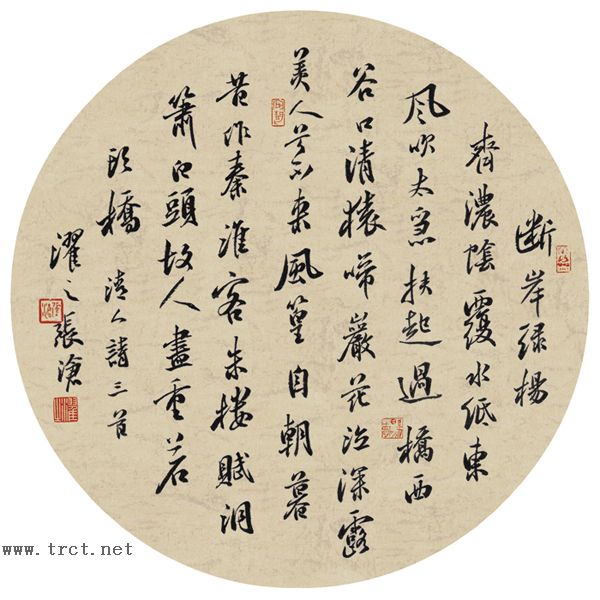 断岸绿楊
齊濃陰覆水低東
风吹太急扶起過橋西
谷口清猿啼巖花泣深露
美人兮不來風篁自朝暮
昔作秦淮客朱樓賦洞
簫白頭故人盡重
橋 清人詩三首
濯之張滄
www.trct.net